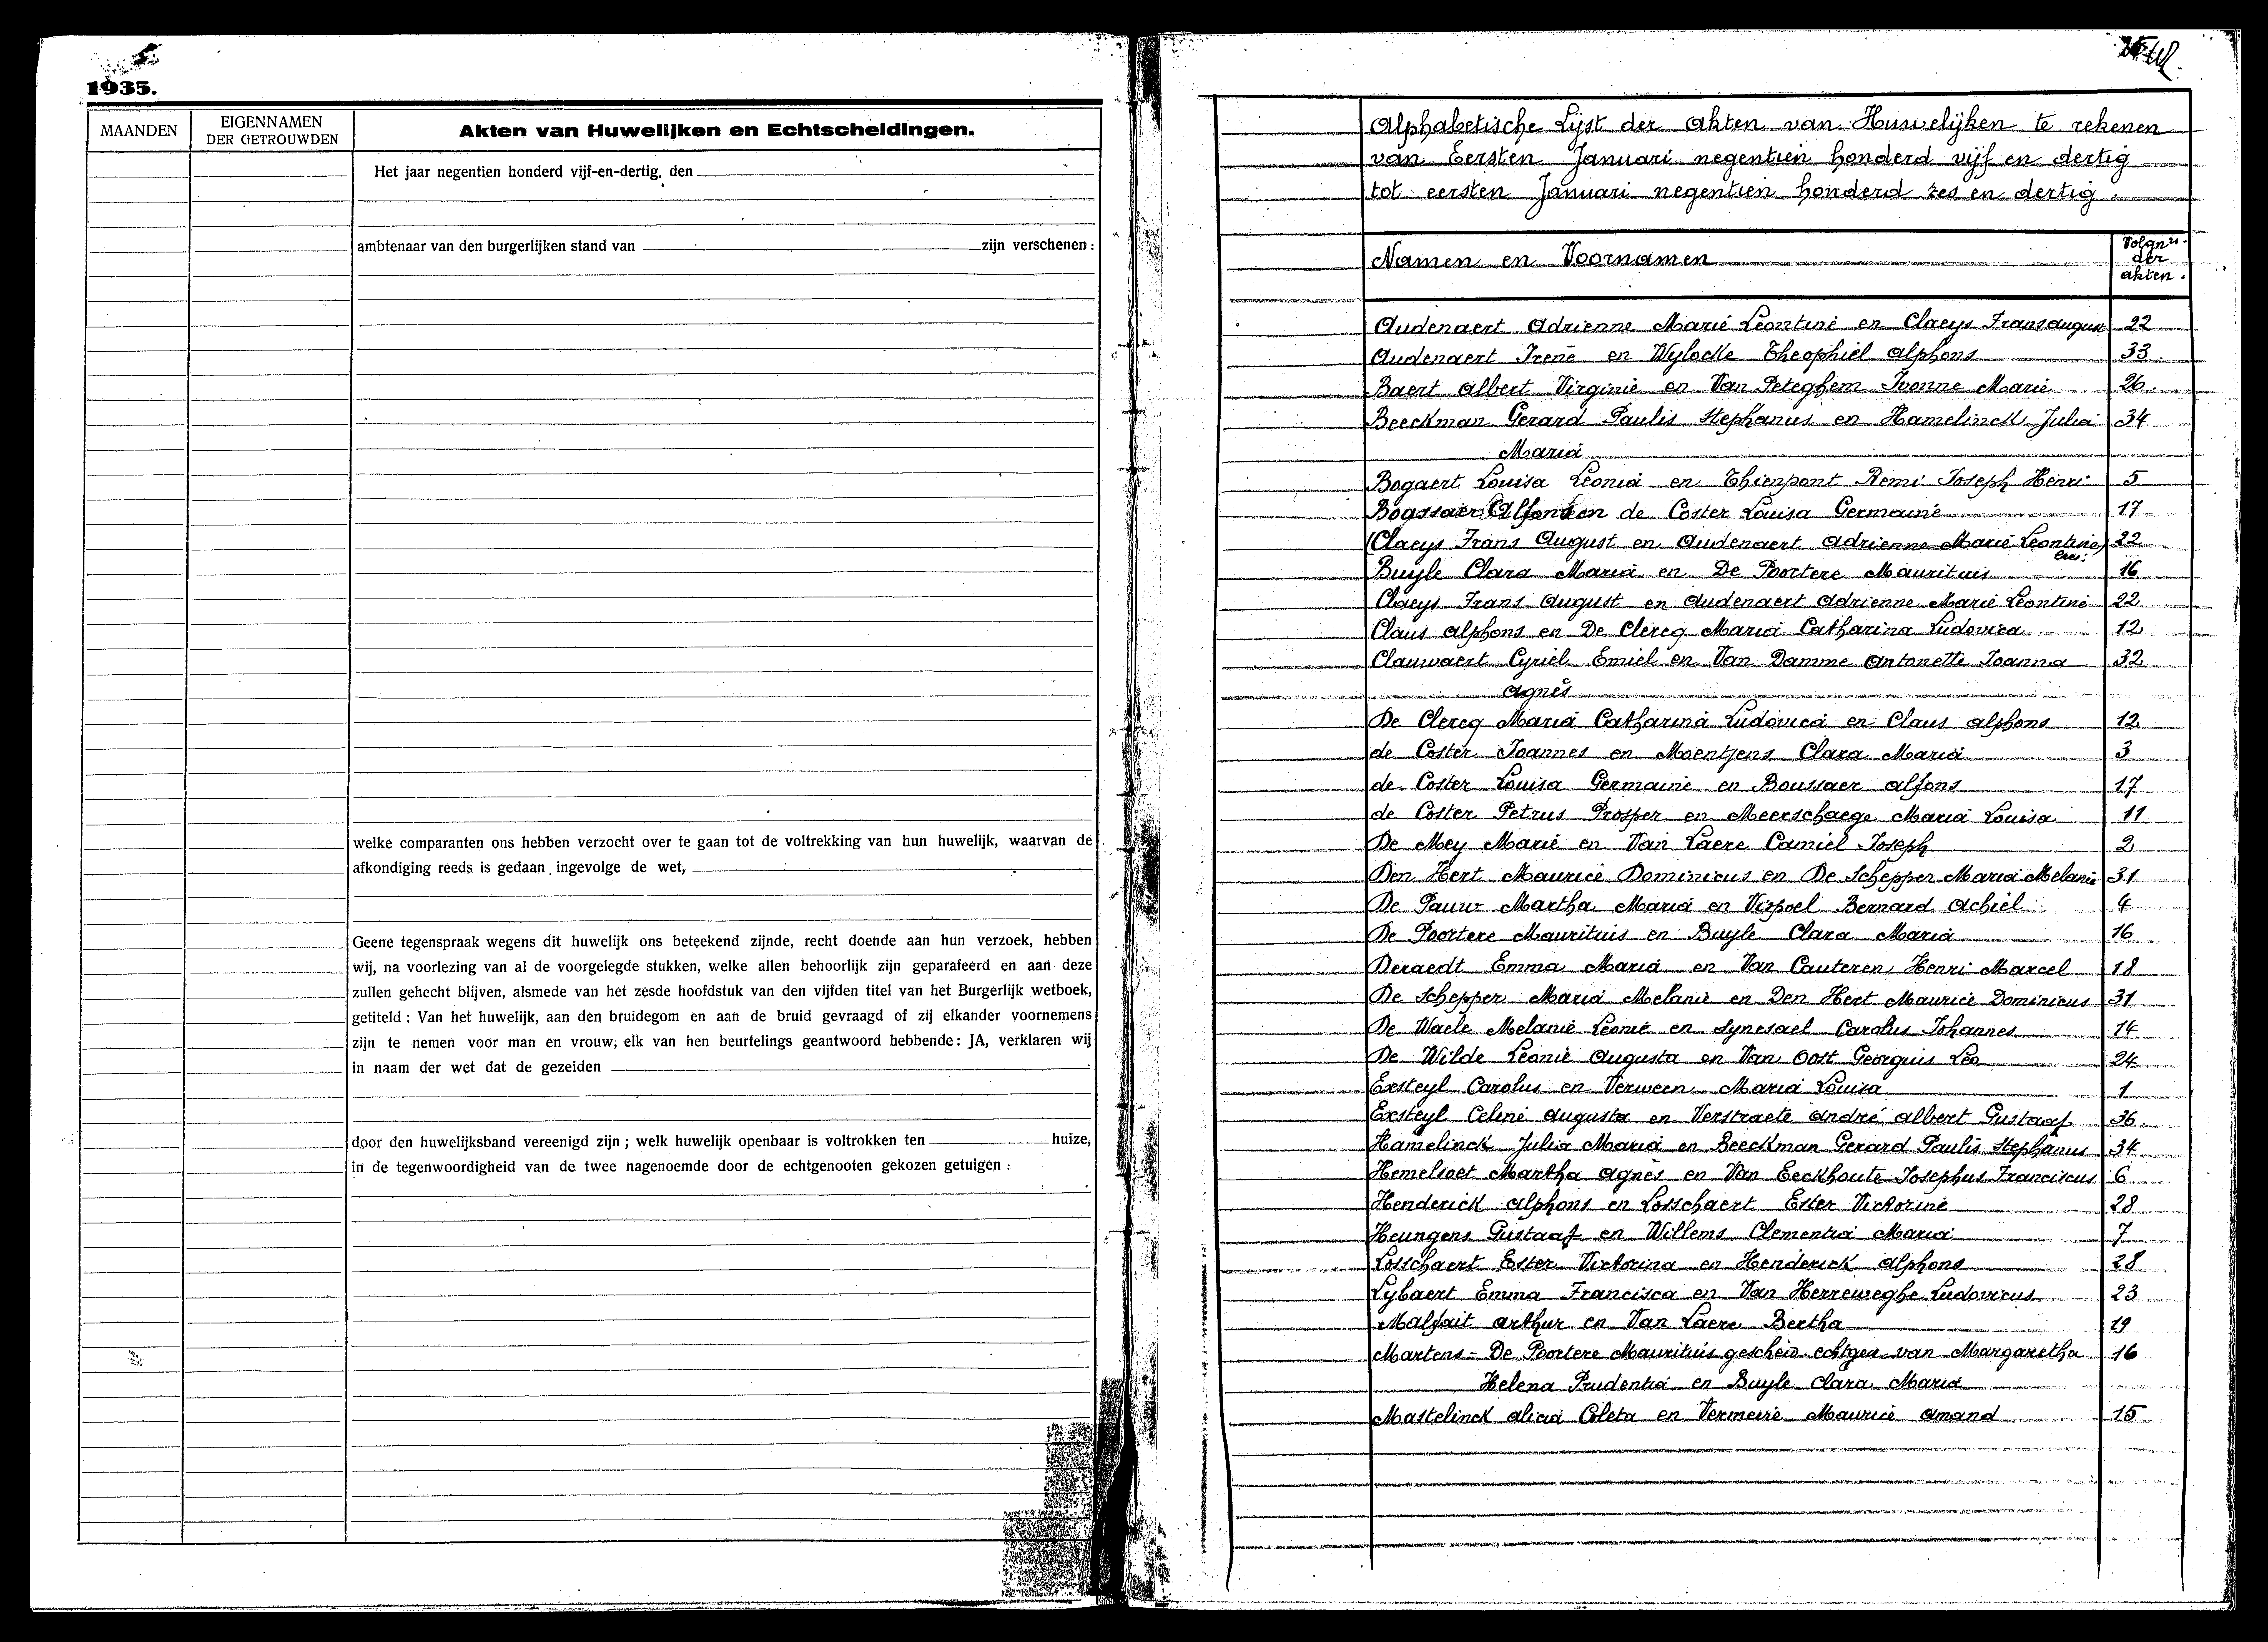 1935.
MAANDEN
EIGENNAMEN
DER GETROUWDEN
Akten van Huwelijken en Echtscheidingen.
Het jaar negentien honderd vijf-en-dertig, den
ambtenaar van den burgerlijken stand van zijn verschenen :
welke comparanten ons hebben verzocht over te gaan tot de voltrekking van hun huwelijk, waarvan de
afkondiging reeds is gedaan ingevolge de wet,
Geene tegenspraak wegens dit huwelijk ons beteekend zijnde, recht doende aan hun verzoek, hebben
wij, na voorlezing van al de voorgelegde stukken, welke allen behoorlijk zijn geparafeerd en aan deze
zullen gehecht blijven, alsmede van het zesde hoofdstuk van den vijfden titel van het Burgerlijk wetboek,
getiteld : Van het huwelijk, aan den bruidegom en aan de bruid gevraagd of zij elkander voornemens
zijn te nemen voor man en vrouw; elk van hen beurtelings geantwoord hebbende : JA, verklaren wij
in naam der wet dat de gezeiden
door den huwelijksband vereenigd zijn ; welk huwelijk openbaar is voltrokken ten huize,
in de tegenwoordigheid van de twee nagenoemde door de echtgenooten gekozen getuigen :
Alphabetische Lijst der akten van Huwelijken te rekenen
van Eersten Januari negentien honderd vijf en dertig
tot eersten Januari negentien honderd zes en dertig
Namen en Voornamen
Volgnrs.
der
akten.
Audenaert Adrienne Marie Leontine en Claeys Frans august 22
Audenaert Irene en Wylocke Theophiel alphons 33
Baert Albert Virginie en Van Peteghem Ivonne Marie 26
Beeckman Gerard Paulis Stephanus en Hamelinck Julia 34
Maria
Bogaert Louisa Leonia en Thienpont Remi Joseph Henri 5
Alfons en de Coster Louisa Germaine 17
(Claeys Frans August en Audenaert Adrienne Marie Leontine) 22
lees:
Buyle Clara Maria en De Poortere Mauritius 16
Claeys Frans August en Audenaert Adrienne Marie Leontine 22
Claus alphons en De Clercq Maria Catharina Ludovica 12
Clauwaert Cyriel Emiel en Van Damme Antonette Joanna 32
Agnès
De Clercq Maria Catharina Ludovica en Claus alphons 12
de Coster Joannes en Moentjens Clara Maria 3
de Coster Louisa Germaine en Boussaer alfons 17
de Coster Petrus Prosper en Meerschaege Maria Louisa 11
De Mey Marie en Van Laere Camiel Joseph 2
Den Hert Maurice Dominicus en De Schepper Maria Melanie 31
De Pauw Martha Maria en Virpoel Bernard Achiel 4
De Poortere Mauritius en Buyle Clara Maria 16
Deraedt Emma Maria en Van Cauteren Henri Marcel 18
De Schepper Maria Melanie en Den Hert Maurice Dominicus 31
De Waele Melanie Leonie en Synesael Carolus Johannes 14
De Wilde Leonie Augusta en Van Oost Georguis Leo 24
Exsteyl Carolus en Verween Maria Louisa 1
Exsteyl Celine Augusta en Verstraete André Albert Gustaaf 36
Hamelinck Julia Maria en Beeckman Gerard Paulis Stephanus 34
Hemelsoet Martha Agnès en Van Eeckhoute Josephus Franciscus 6
Henderick Alphons en Losschaert Ester Victorine 28
Heungens Gustaaf en Willems Clementia Maria 7
Losschaert Ester Victorina en Henderick Alphons 28
Lybaert Emma Francisca en Van Herreweghe Ludovicus 23
Malfait Arthur en Van Laere Bertha 19
Martens - De Poortere Mauritius gescheid. echtgen. van Margaretha 16
Helena Prudentia en Buyle Clara Maria
Mastelinck Alicia Coleta en Vermeire Maurice Amand 15